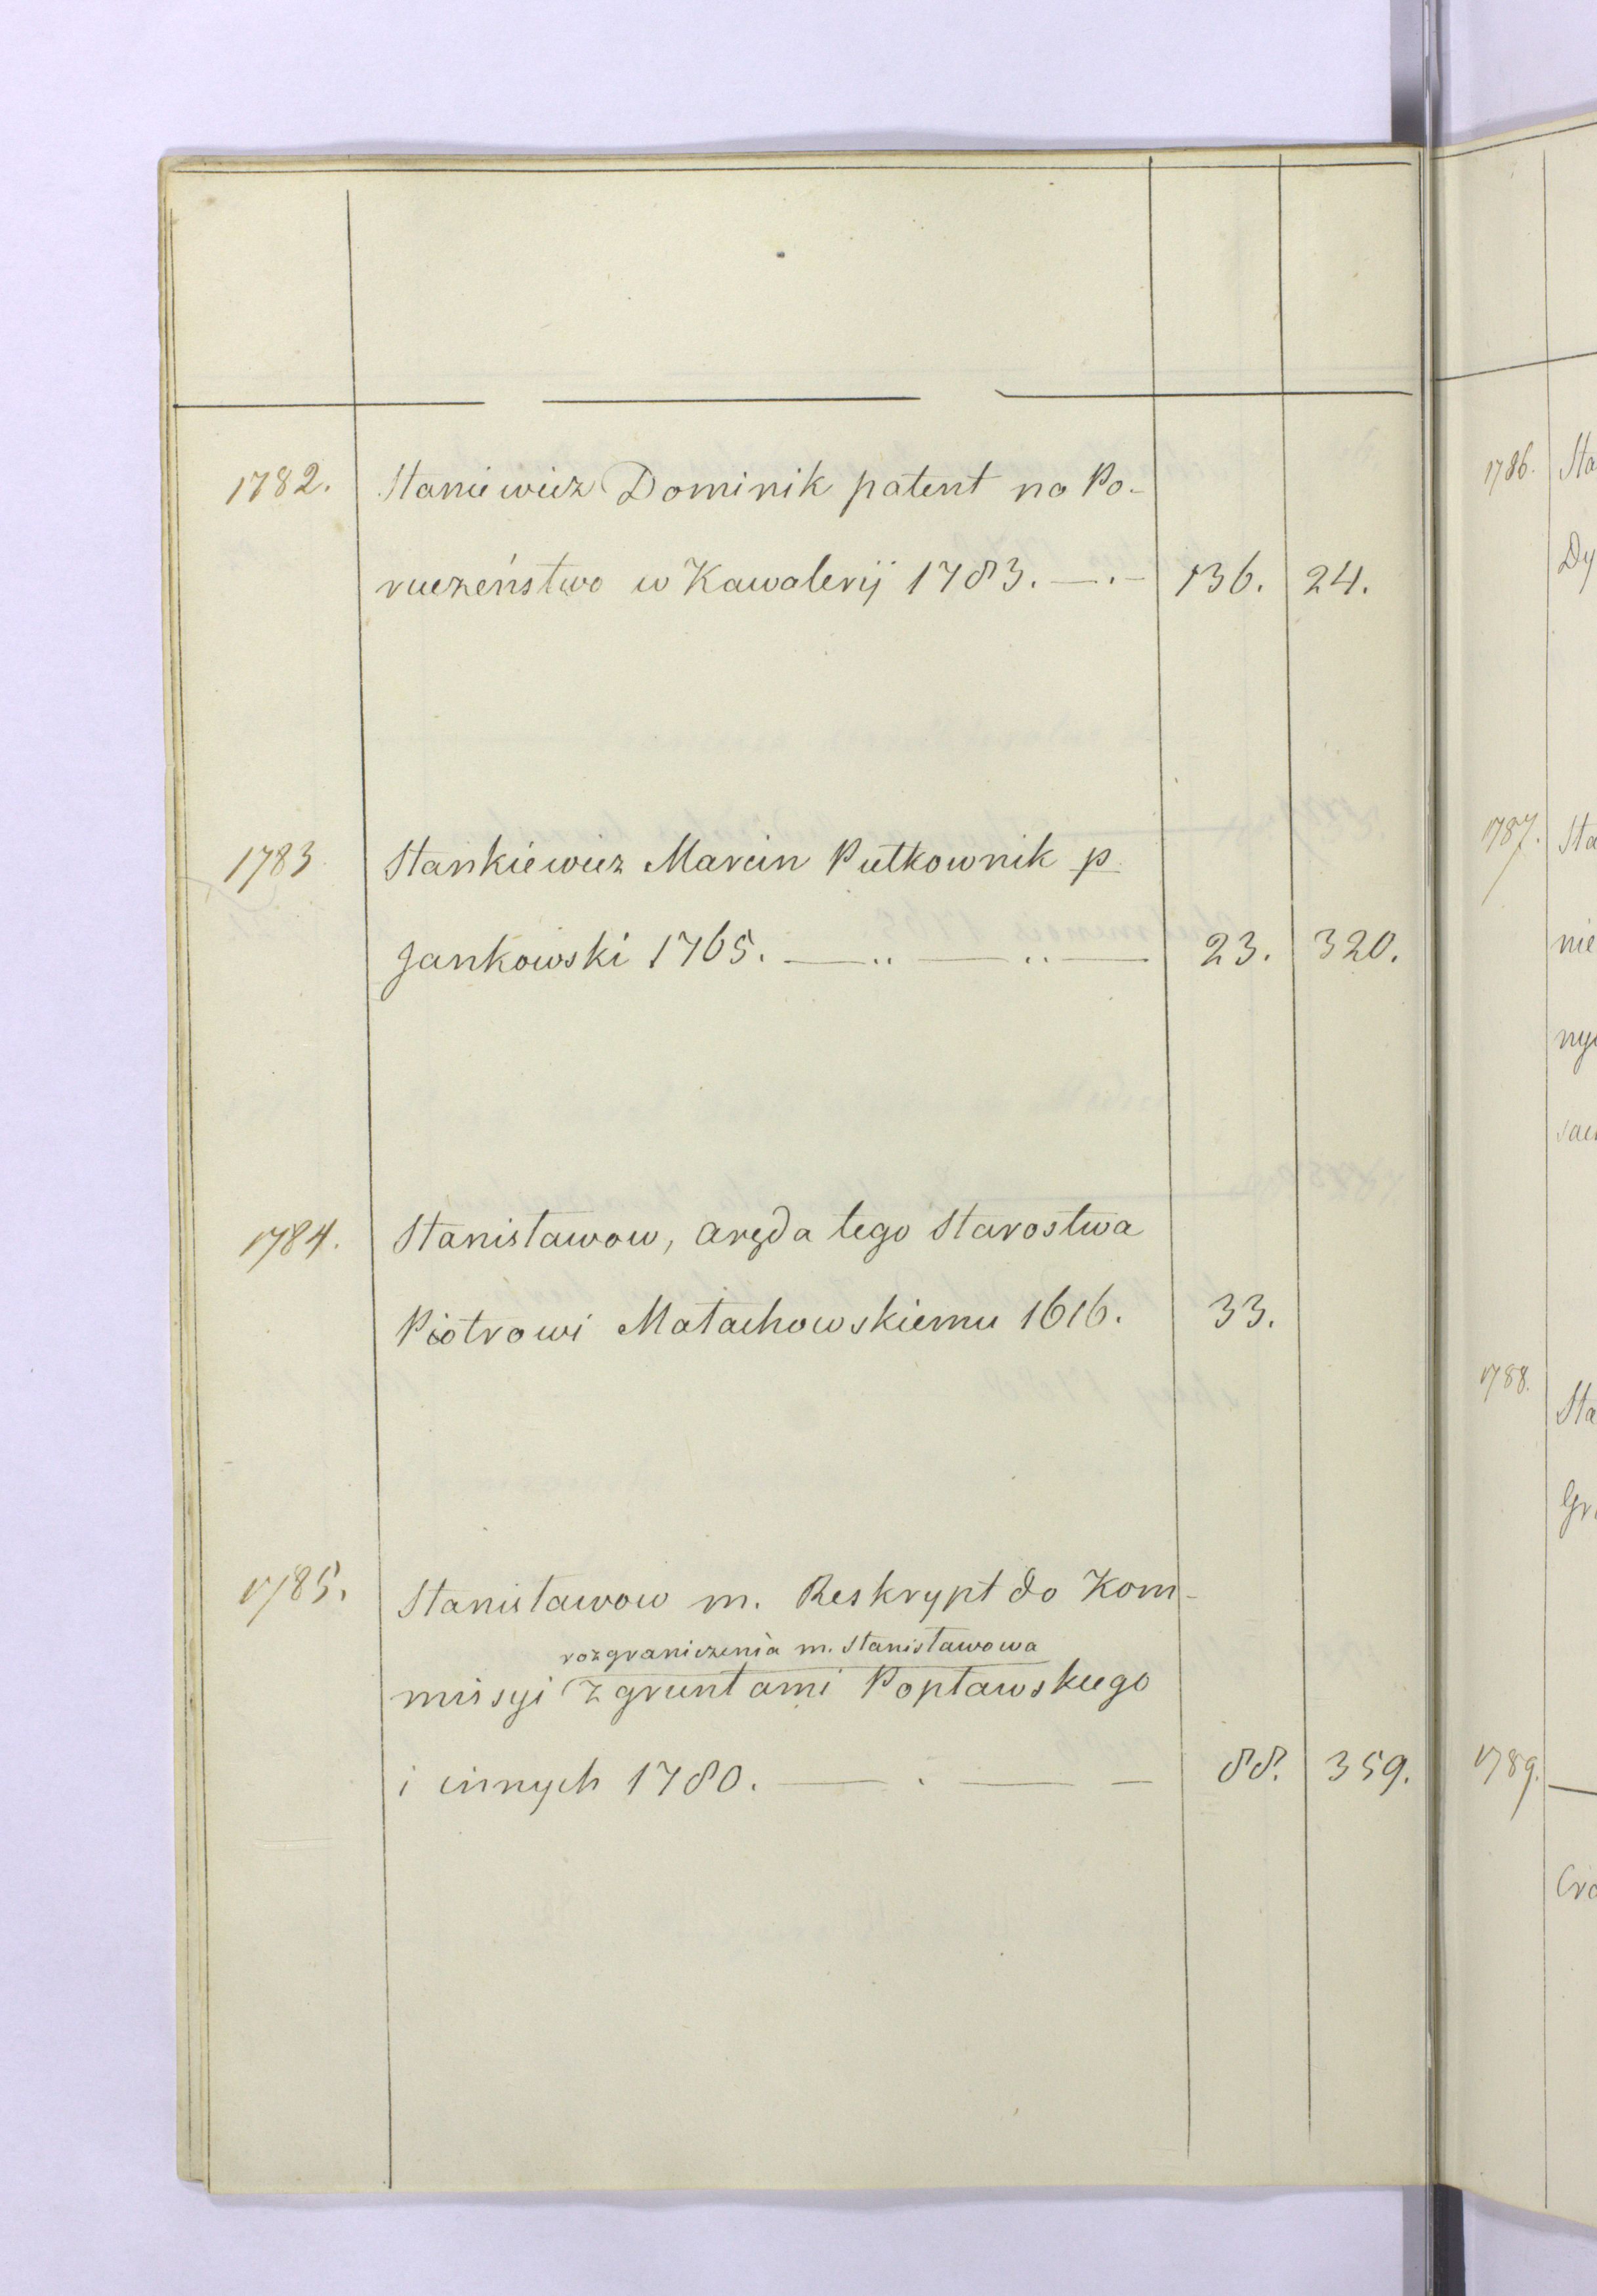 1782. Staniewicz Dominik patent na Po-
ruczeństwo w Kawaleryj 1783. —.— 136. 24.
1783. Stankiewicz Marcin Pułkownik p.
Jankowski 1765. — .. — .. — 23. 320.
1784. Stanisławow, aręda tego Starostwa
Piotrowi Małachowskiemu 1616. 33.
1785. Stanisławow m. Reskrypt do Kom-
rozgraniczenia m. Stanisławowa
missyi z gruntami Popławskiego
i innych 1780. — . — — 88. 359.
1786. Sta
Dy
1787. Sta
nie
ny
1788. Sta
Gr
1789. —